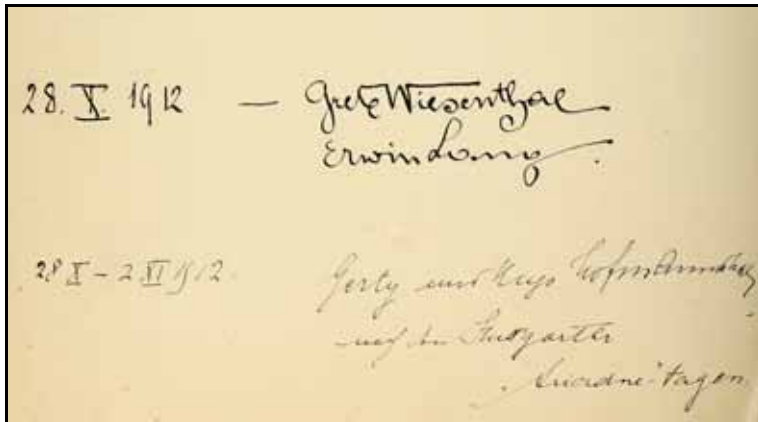 28. X 1912 — Grete Wiesenthal
Erwin Lang.
28 X – 2 XI 1912 Gerty und Hugo Hofmannsthal
nach den Stuttgarter
„Ariadne“-tagen.